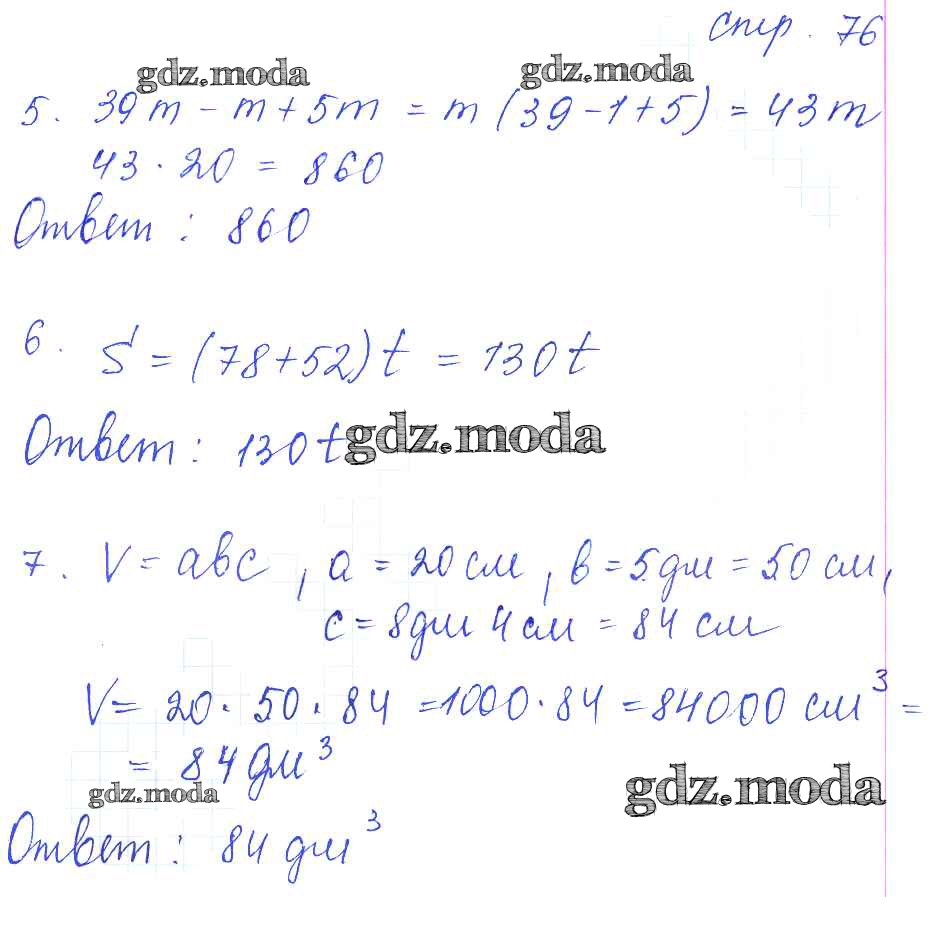 стр. 76
gdz.moda gdz.moda
5. 39m - m + 5m = m (39 - 1 + 5) = 43m
43 · 20 = 860
Ответ : 860
6. S = (78 + 52) t = 130t
Ответ : 130t
gdz.moda
7. V = abc , a = 20 см , b = 5 дм = 50 см ,
c = 8 дм 4 см = 84 см
V = 20 · 50 · 84 = 1000 · 84 = 84000 см³ =
= 84 дм³
gdz.moda gdz.moda
Ответ : 84 дм³